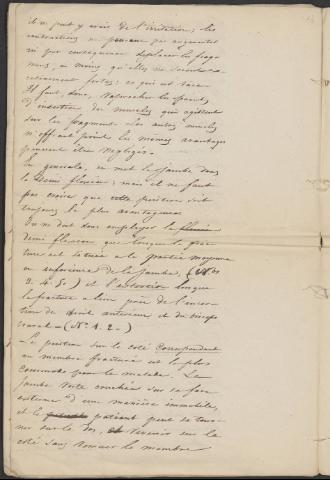 il n'y peut y avoir de l'irritation; les
contractions ne peuvent pas augmenter
ni par conséquent déplacer les frag
mens, à moins qu'elles ne soient
certainement fortes: ce qui est rare
Il faut, donc, rapprocher les points
d'insertion des muscles qui agissent
sur les fragments les autres muscles
n'offrant point les mêmes avantages
peuvent être négligés.
En général, on met la jambe dans
la demi flexion; mais il ne faut
pas croire que cette position soit
toujours la plus avantageuse
On ne doit donc employer la
demi flexion que lorsque la frac
ture est située à la partie moyenne
ou inférieure de la jambe, (Nos
3. 4. 5.) et l'extension lorsque
la fracture a lieu près de l'inser
tion du droit antérieur et du triceps
crural - (No. 1. 2.)
La position sur le côté correspondant
au membre fracturé est la plus
commode pour le malade. La
jambe reste couchée sur sa face
externe d'une manière immobile,
et le patient peut se tour
ner sur le dos, et revenir sur le
côté sans remuer le membre